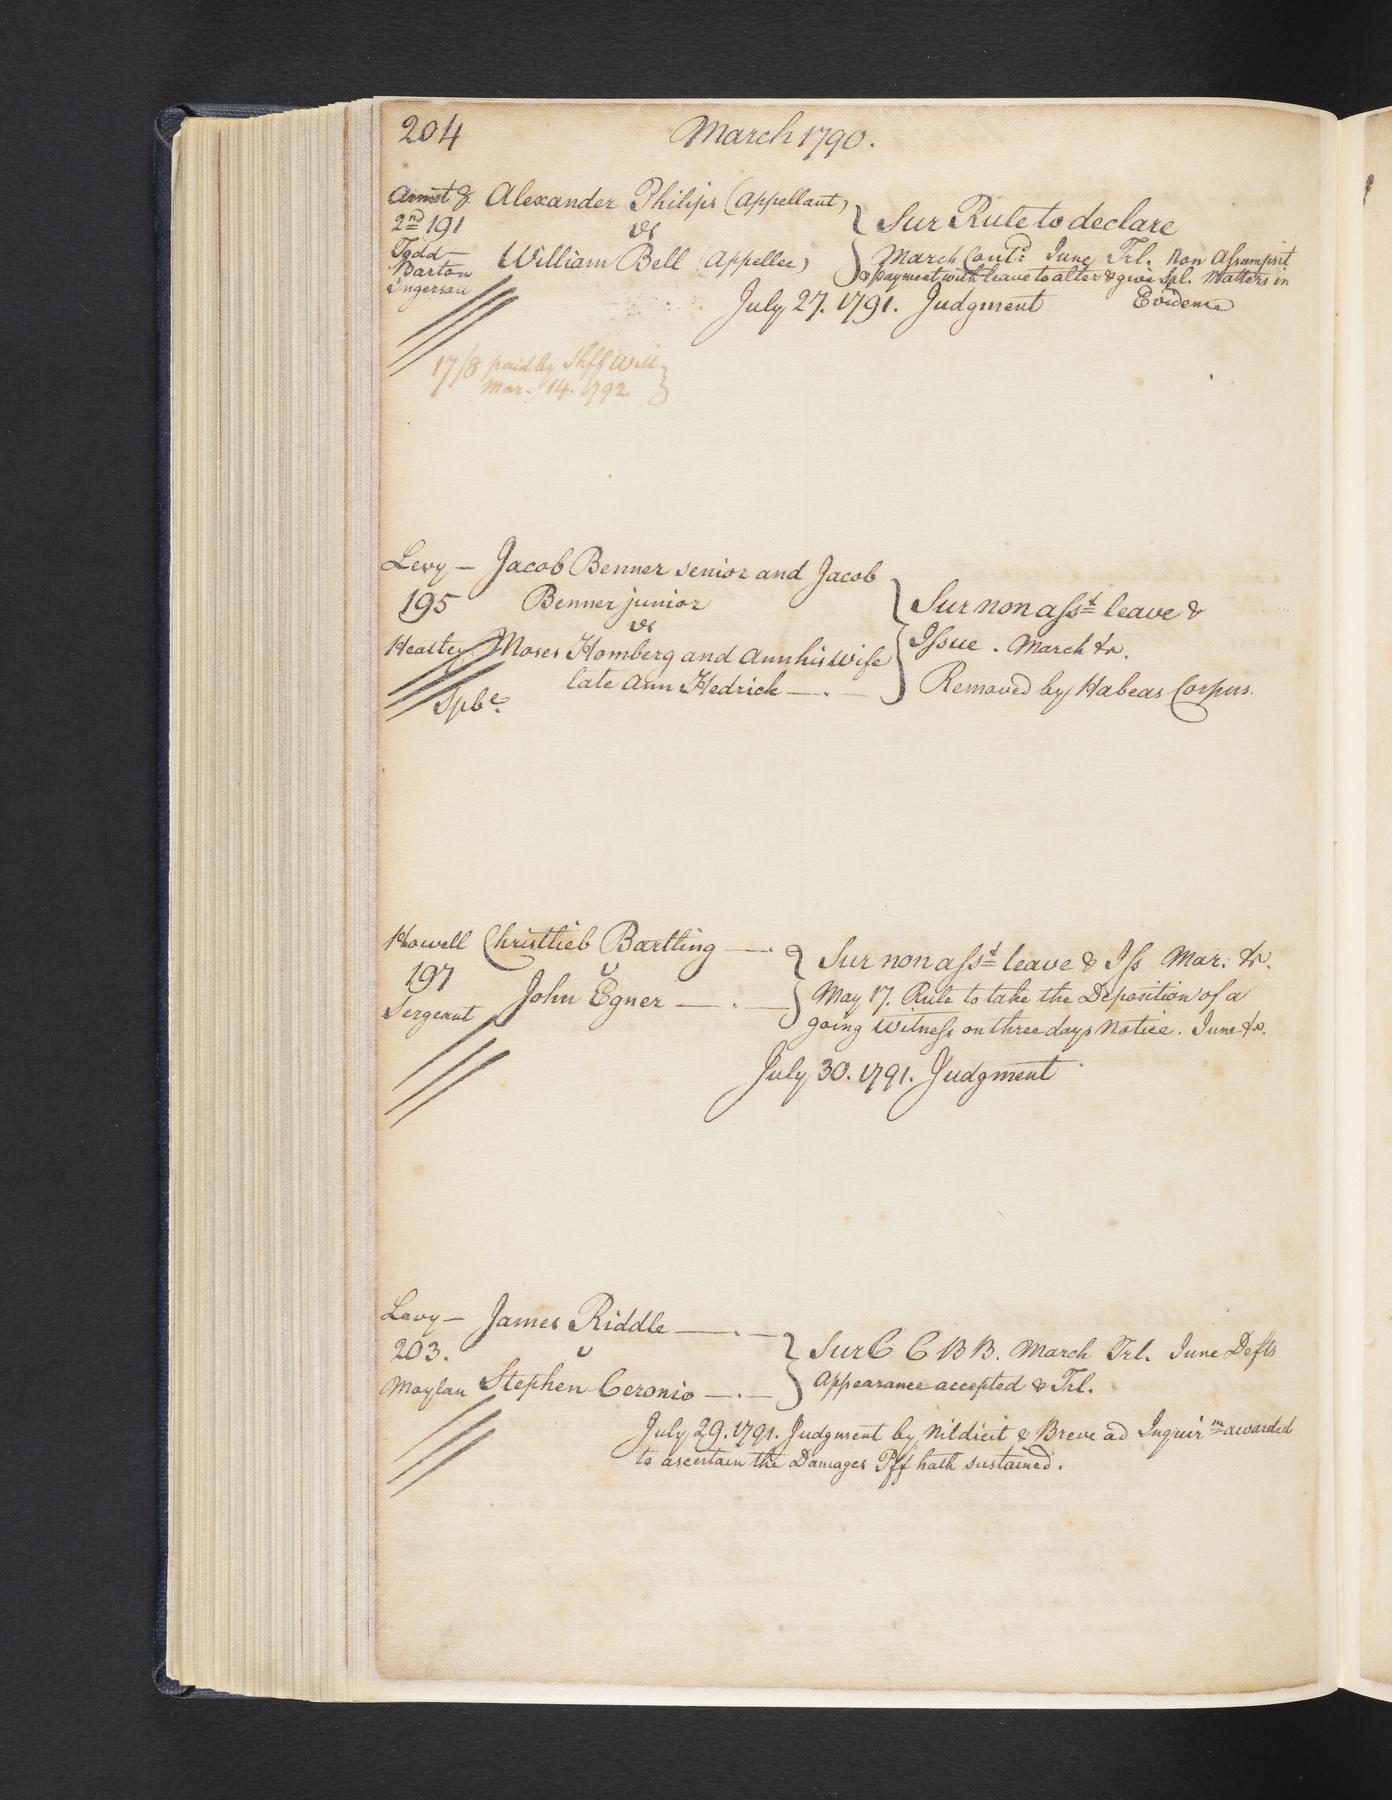 204 March 1790.
Alexander Philips (Appellant)
2nd 191 vs
Todd — William Bell (Appellee)
Barton
Ingersoll
Sur Rule to declare
March Contd. June Trl. Non Assumpsit
& payment with leave to alter & give Spl. Matters in
Evidence
July 27. 1791. Judgment
17/8 paid by Shff Will
Mar. 14. 1792
Levy — Jacob Benner senior and Jacob
195 Benner junior
vs
Heatley Moses Homberg and Ann his Wife
late Ann Hedrick — . —
Spbe.
Sur non asst leave &
Issue . March &c.
Removed by Habeas Corpus.
Howell Christlieb Bartling — .
197 v
Sergeant John Egner — . —
Sur non asst leave & Iss Mar: &c.
May 17. Rule to take the Deposition of a
going Witness on three days Notice. June &c.
July 30. 1791. Judgment
Levy — James Riddle — . —
203. v
Moylan Stephen Ceronio — . —
Sur C C B B. March Trl. June Defts
Appearance accepted & Trl.
July 29. 1791. Judgment by Nildicit & Breve ad Inquirm awarded
to ascertain the Damages Pff hath sustained.